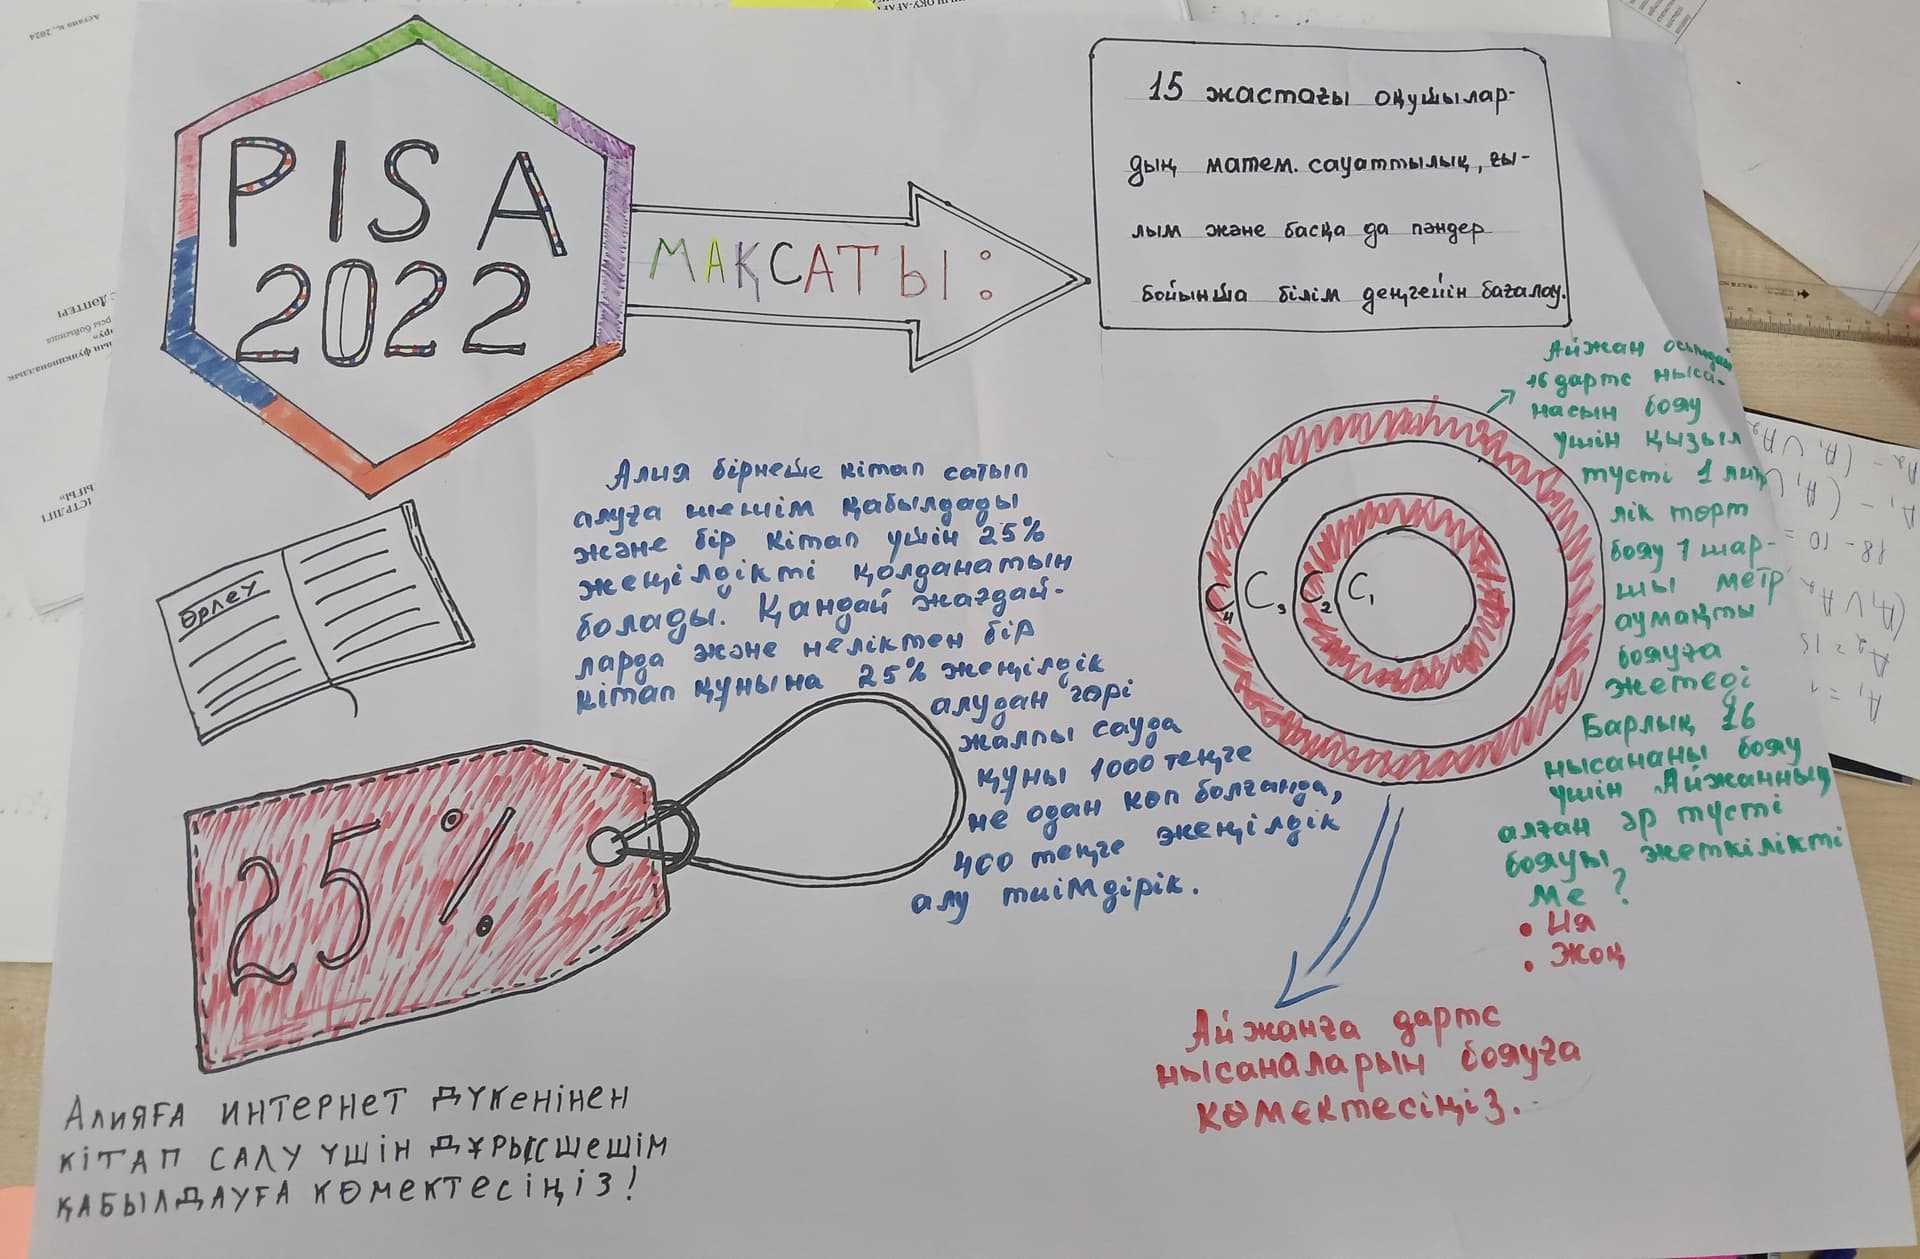 PISA
2022
МАҚСАТЫ:
15 жастағы оқушылар-
дың матем. сауаттылық, ғы-
лым және басқа да пәндер
бойынша білім деңгейін бағалау.
Алия бірнеше кітап сатып
алуға шешім қабылдады
және бір кітап үшін 25%
жеңілдікті қолданатын
болады. Қандай жағдай-
ларда және неліктен бір
кітап құнына 25% жеңілдік
алудан гөрі
жалпы сауда
құны 1000 теңге
не одан көп болғанда,
400 теңге жеңілдік
алу тиімдірік.
Өрлеу
25%
Алияға интернет дүкенінен
кітап салу үшін дұрысшешім
қабылдауға көмектесіңіз!
Айжан осындай
16 дартс ныса-
насын бояу
үшін қызыл
түсті 1 лит
лік төрт
бояу 1 шар-
шы метр
аумақты
бояуға
жетеді
Барлық 16
нысананы бояу
үшін Айжанның
алған әр түсті
бояуы жеткілікті
ме?
• Ия
• Жоқ
C4 C3 C2 C1
Айжанға дартс
нысаналарын бояуға
көмектесіңіз.
Астана қ., 2024
ДӘПТЕРІ
A1 = 1
A2 = 15
18 - 10 =